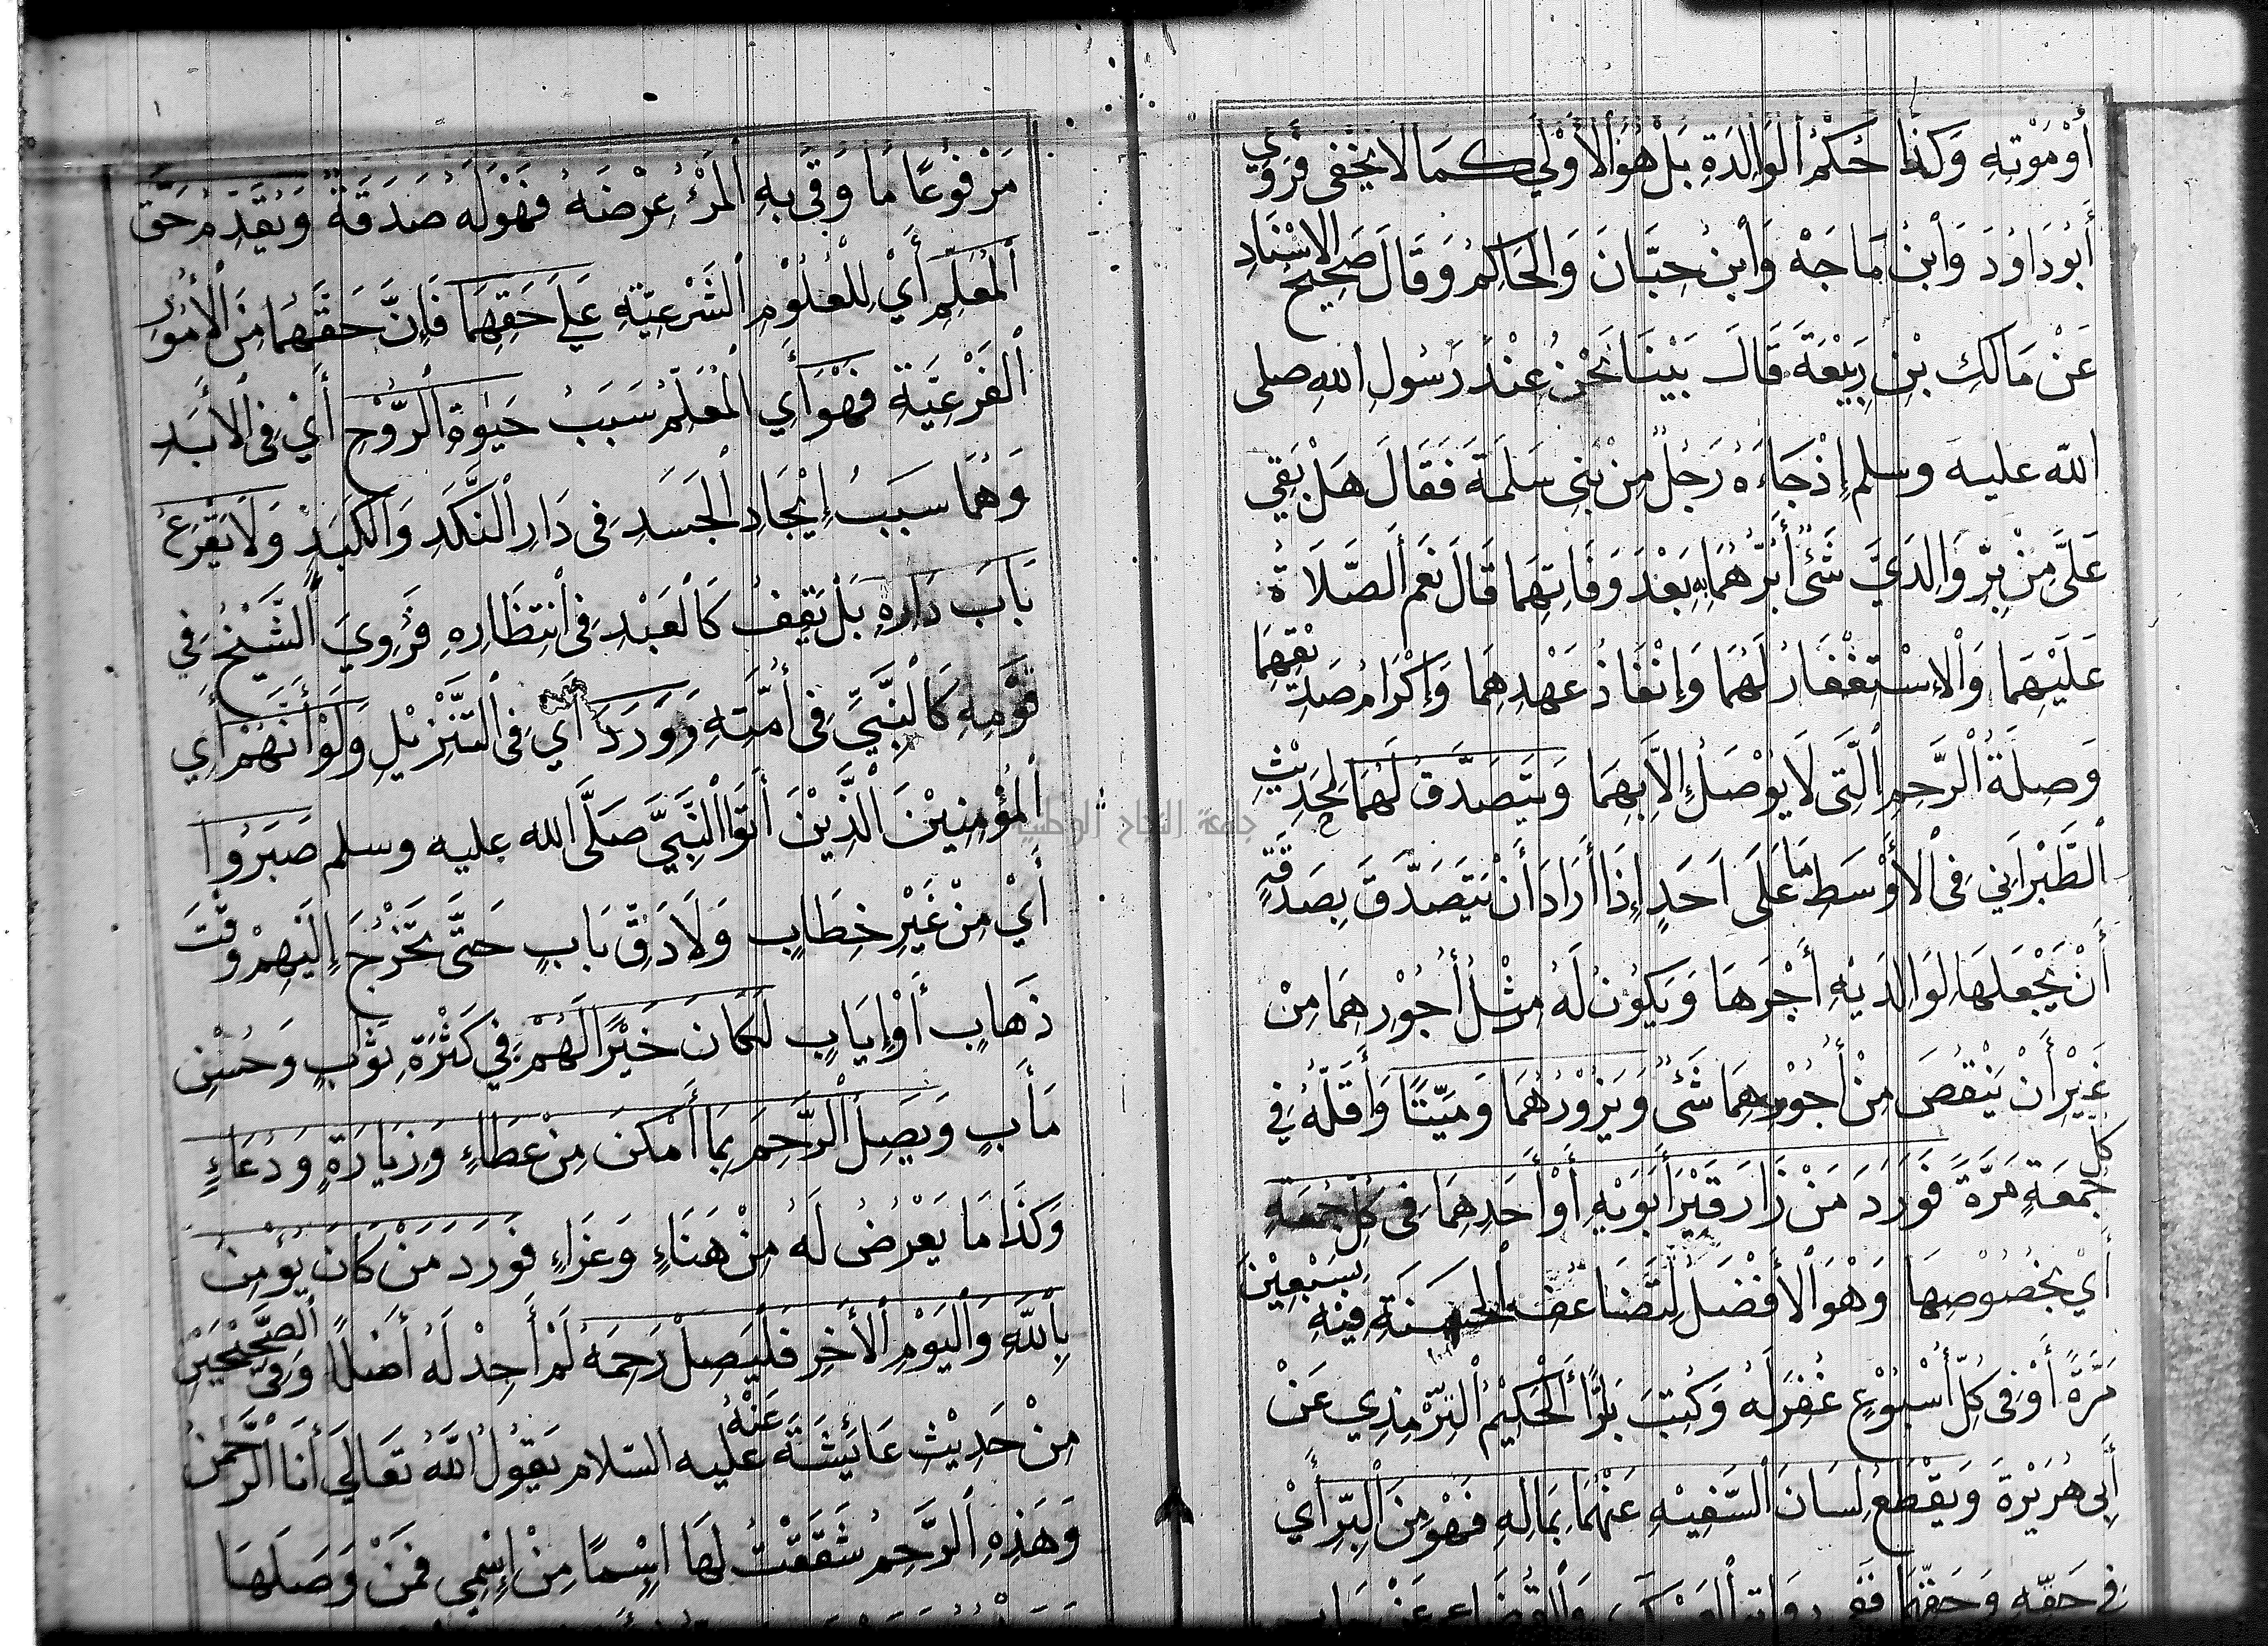 أَوْ مَوْتِهِ وَكَذَا حُكْمُ الْوَالِدَةِ بَلْ هُوَ الْأَوْلَى كَمَا لَا يَخْفَى فَرَوَى
أَبُو دَاوُدَ وَابْنُ مَاجَهْ وَابْنُ حِبَّانَ وَالْحَاكِمُ وَقَالَ صَحِيحُ الْإِسْنَادِ
عَنْ مَالِكِ بْنِ رَبِيْعَةَ قَالَ بَيْنَا نَحْنُ عِنْدَ رَسُولِ اللهِ صلى
الله عليه وسلم إِذْ جَاءَهُ رَجُلٌ مِنْ بَنِي سَلَمَةَ فَقَالَ هَلْ بَقِيَ
عَلَيَّ مِنْ بِرِّ وَالِدَيَّ شَيْءٌ أَبَرُّهُمَا بِهِ بَعْدَ وَفَاتِهِمَا قَالَ نَعَمْ الصَّلَاةُ
عَلَيْهِمَا وَالْاِسْتِغْفَارُ لَهُمَا وَإِنْفَاذُ عَهْدِهِمَا وَإِكْرَامُ صَدِيْقِهِمَا
وَصِلَةُ الرَّحِمِ الَّتِي لَا يُوْصَلُ إِلَّا بِهِمَا وَيَتَصَدَّقُ لَهُمَا لِحَدِيْثِ
الطَّبْرَانِي فِي الْأَوْسَطِ مَا عَلَى أَحَدٍ إِذَا أَرَادَ أَنْ يَتَصَدَّقَ بِصَدَقَةٍ
أَنْ يَجْعَلَهَا لِوَالِدَيْهِ أَجْرَهَا وَيَكُوْنُ لَهُ مِثْلُ أُجُوْرِهِمَا مِنْ
غَيْرِ أَنْ يَنْقُصَ مِنْ أُجُوْرِهِمَا شَيْءٌ وَيَزُوْرُهُمَا وَمَيِّتًا وَأَقَلُّهُ فِي
كل جُمُعَةٍ مَرَّةً فَوَرَدَ مَنْ زَارَ قَبْرَ أَبَوَيْهِ أَوْ أَحَدِهِمَا فِي كُلِّ جُمُعَةٍ
أَيْ بِخُصُوْصِهَا وَهُوَ الْأَفْضَلُ لِتَضَاعُفِ الْحَسَنَةِ فِيْهِ بِسَبْعِيْنَ
مَرَّةً أَوْ فِي كُلِّ أُسْبُوْعٍ غُفِرَ لَهُ وَكُتِبَ بَرًّا الْحَكِيْمُ التِّرْمِذِي عَنْ
أَبِي هُرَيْرَةَ وَيَقْطَعُ لِسَانَ السَّفِيْهِ عَنْهُمَا بِمَالِهِ فَهُوَ مِنَ الْبِرِّ أَيْ
فِي حَقِّهِ وَحَقِّهِمَا
مَرْفُوْعًا مَا وَقَى بِهِ الْمَرْءُ عِرْضَهُ فَهُوَ لَهُ صَدَقَةٌ وَيُقَدِّمُ حَقَّ
الْمُعَلِّمِ أَيْ لِلْعُلُوْمِ الشَّرْعِيَّةِ عَلَى حَقِّهِمَا فَإِنَّ حَقَّهُمَا مِنَ الْأُمُوْرِ
الْفَرْعِيَّةِ فَهُوَ أَيِ الْمُعَلِّمُ سَبَبُ حَيٰوةِ الرُّوْحِ أَيْ فِي الْأَبَدِ
وَهُمَا سَبَبُ إِيْجَادِ الْجَسَدِ فِي دَارِ النَّكَدِ وَالْكَبَدِ وَلَا يَقْرَعُ
بَابَ دَارِهِ بَلْ يَقِفُ كَالْعَبْدِ فِي انْتِظَارِهِ فَرُوِيَ الشَّيْخُ فِي
قَوْمِهِ كَالنَّبِيِّ فِي أُمَّتِهِ وَوَرَدَ أَيْ فِي التَّنْزِيْلِ وَلَوْ أَنَّهُمْ أَيِ
الْمُؤْمِنِيْنَ الَّذِيْنَ أَتَوُا النَّبِيَّ صَلَّى الله عليه وسلم صَبَرُوا
أَيْ مِنْ غَيْرِ خِطَابٍ وَلَا دَقِّ بَابٍ حَتَّى تَخْرُجَ إِلَيْهِمْ وَقْتَ
ذَهَابٍ أَوْ إِيَابٍ لَكَانَ خَيْرًا لَهُمْ فِي كَثْرَةِ ثَوَابٍ وَحُسْنِ
مَأَبٍ وَيَصِلُ الرَّحِمَ بِمَا أَمْكَنَ مِنْ عَطَاءٍ وَزِيَارَةٍ وَدُعَاءٍ
وَكَذَا مَا يَعْرُضُ لَهُ مِنْ هَنَاءٍ وَعَزَاءٍ فَوَرَدَ مَنْ كَانَ يُؤْمِنُ
بِاللهِ وَالْيَوْمِ الْأَخِرِ فَلْيَصِلْ رَحِمَهُ لَمْ أَجِدْ لَهُ أَصْلًا وَفِي الصَّحِيْحَيْنِ
مِنْ حَدِيْثِ عَائِشَةَ عَنْهُ عَلَيه السّلام يَقُوْلُ اللهُ تَعَالَى أَنَا الرَّحْمٰنُ
وَهَذِهِ الرَّحِمُ شَقَقْتُ لَهَا اِسْمًا مِنْ إِسْمِي فَمَنْ وَصَلَهَا
جامعة النجاح الوطنية